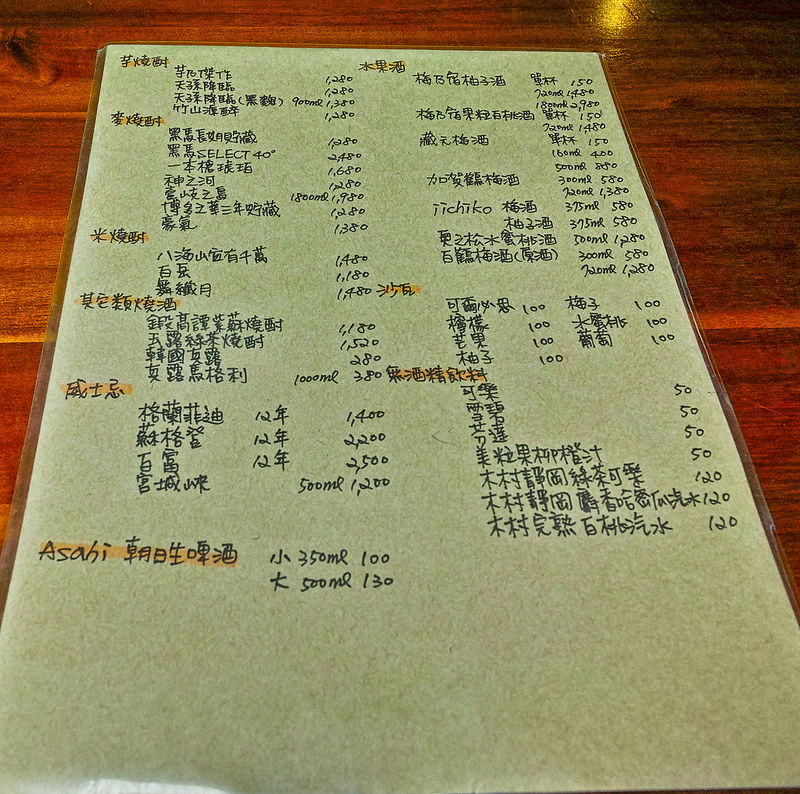 芋燒酎
芋乃傑作 1,280
天孫降臨 1,280
天孫降臨(黑麴) 900ml 1,380
竹山源醉 1,280
麥燒酎
黑馬長期貯藏 1,280
黑馬SELECT 40° 2,480
一本槍琥珀 1,680
神之河 1,280
壹岐之島 1800ml 1,980
博多之華三年貯藏 1,280
豪氣 1,380
米燒酎
八海山宜有千萬 1,480
白岳 1,180
舞纖月 1,480
其它類燒酒
鍛高譚紫蘇燒酎 1,180
玉露綠茶燒酎 1,520
韓國真露 280
真露馬格利 1000ml 380
威士忌
格蘭菲迪 12年 1,400
蘇格登 12年 2,200
百富 12年 2,500
宮城峽 500ml 1,200
Asahi 朝日生啤酒 小 350ml 100
大 500ml 130
水果酒
梅乃宿柚子酒 單杯 150
720ml 1,480
1800ml 2,980
梅乃宿果粒白桃酒 單杯 150
720ml 1,480
藏元梅酒 單杯 150
160ml 400
500ml 850
加賀鶴梅酒 300ml 580
720ml 1,380
iichiko 梅酒 375ml 580
柚子酒 375ml 580
奧之松水蜜桃酒 500ml 1,280
百鶴梅酒(原酒) 300ml 580
720ml 1,280
沙瓦
可爾必思 100 梅子 100
檸檬 100 水蜜桃 100
芒果 100 葡萄 100
柚子 100
無酒精飲料
可樂 50
雪碧 50
芬達 50
美粒果柳橙汁 50
木村靜岡綠茶可樂 120
木村靜岡麝香哈密瓜汽水 120
木村完熟白桃汽水 120